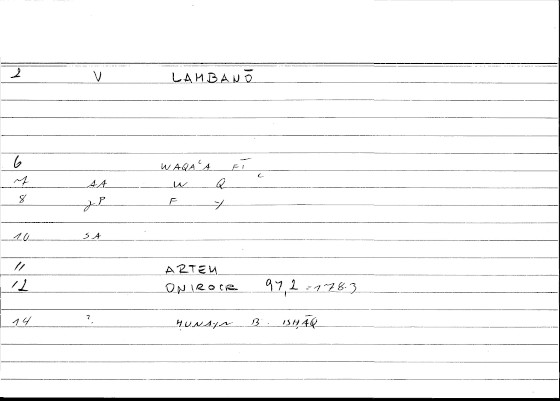 2 V LAMBANŌ
6 WAQAʿA FĪ
7 SA W Q ʿ
8 P F Y
10 SA
11 ARTEM
12 ONIROCR 97,2 178.3
14 ? ḤUNAYN B. ISḤĀQ